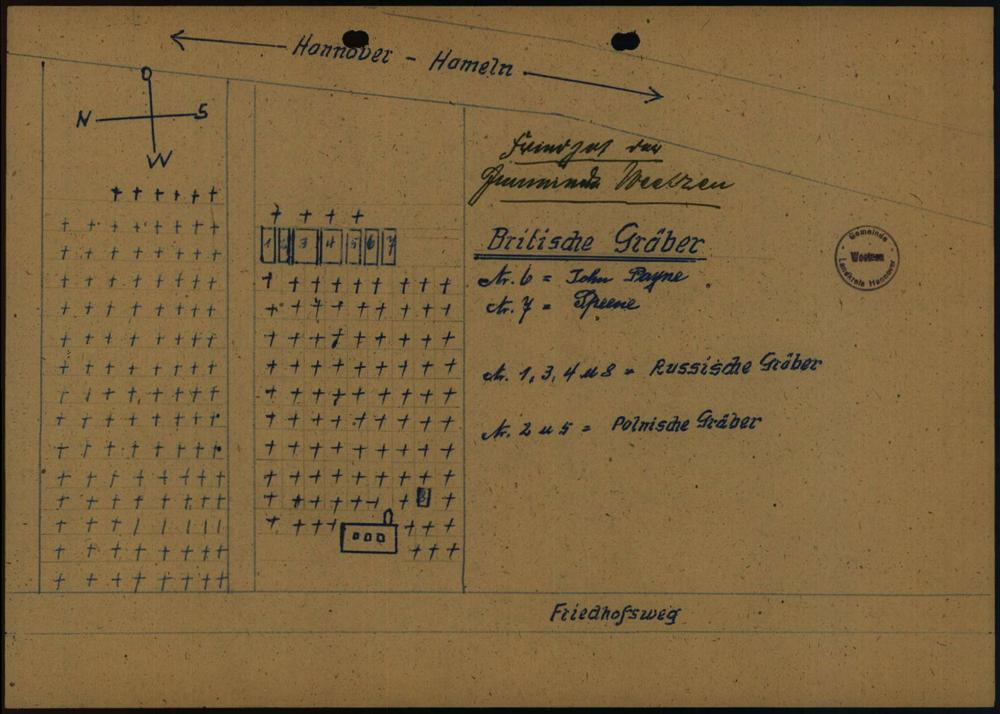 Hannover - Hameln
O
N S
W
Friedhof der
Gemeinde Weetzen
Britische Gräber
Gemeinde
Weetzen
Landkreis Hannover
Nr. 6 = John Payne
Nr. 7 =
Nr. 1, 3, 4 u 8 = Russische Gräber
Nr. 2 u 5 = Polnische Gräber
1 2 3 4 5 6 7
8
Friedhofsweg